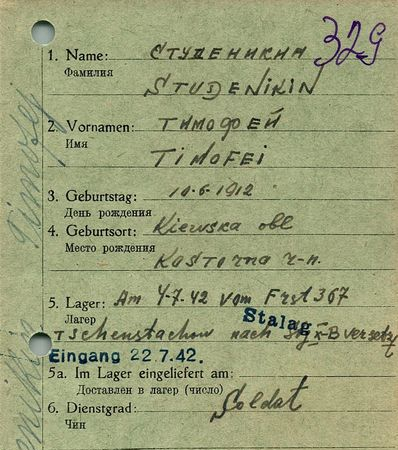 329
1. Name: СТУДЕНИКИН
Фамилия
STUDENIKIN
2. Vornamen: ТИМОФЕЙ
Имя
TIMOFEI
3. Geburtstag: 10.6.1912
День рождения
4. Geburtsort: Kiewska obl
Место рождения
Kastorna r-n.
5. Lager: Am 4.7.42 vom Frst 367
Лагер
Stalag
Tschenstachow nach B versetzt
Eingang 22.7.42.
5a. Im Lager eingeliefert am:
Доставлен в лагер (число)
6. Dienstgrad: Soldat
Чин
Timofej